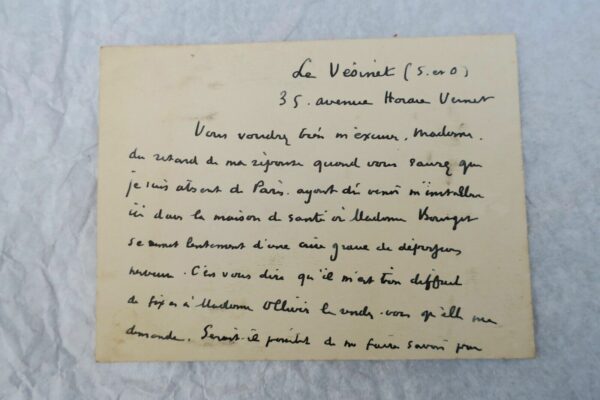 Le Vésinet (S. et O)
35. avenue Horace Vernet
Vous voudrez bien m'excuser, Madame,
du retard de ma réponse quand vous saurez que
je suis absent de Paris. ayant dû venir m'installer
ici dans la maison de santé où Madame Bourget
se remet lentement d'une crise grave de dépression
nerveuse. C'est vous dire qu'il m'est bien difficile
de fixer à Madame Ollivier le rendez-vous qu'elle me
demande. Serait-il possible de me faire savoir par